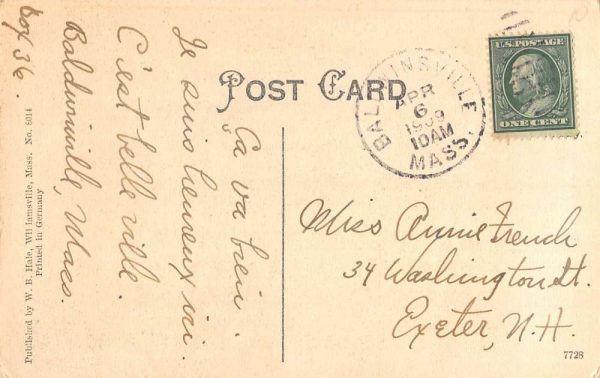 POST CARD
BALDWINSVILLE
APR
6
1909
10AM
MASS.
U.S. POSTAGE
ONE CENT
Ça va bien.
Je suis heureux ici.
C'est belle ville.
Baldwinville, Mass.
Box 36.
Miss Annie French
34 Washington St.
Exeter, N.H.
Published by W. B. Hale, Williamsville, Mass. No. 8014
Printed in Germany
7728